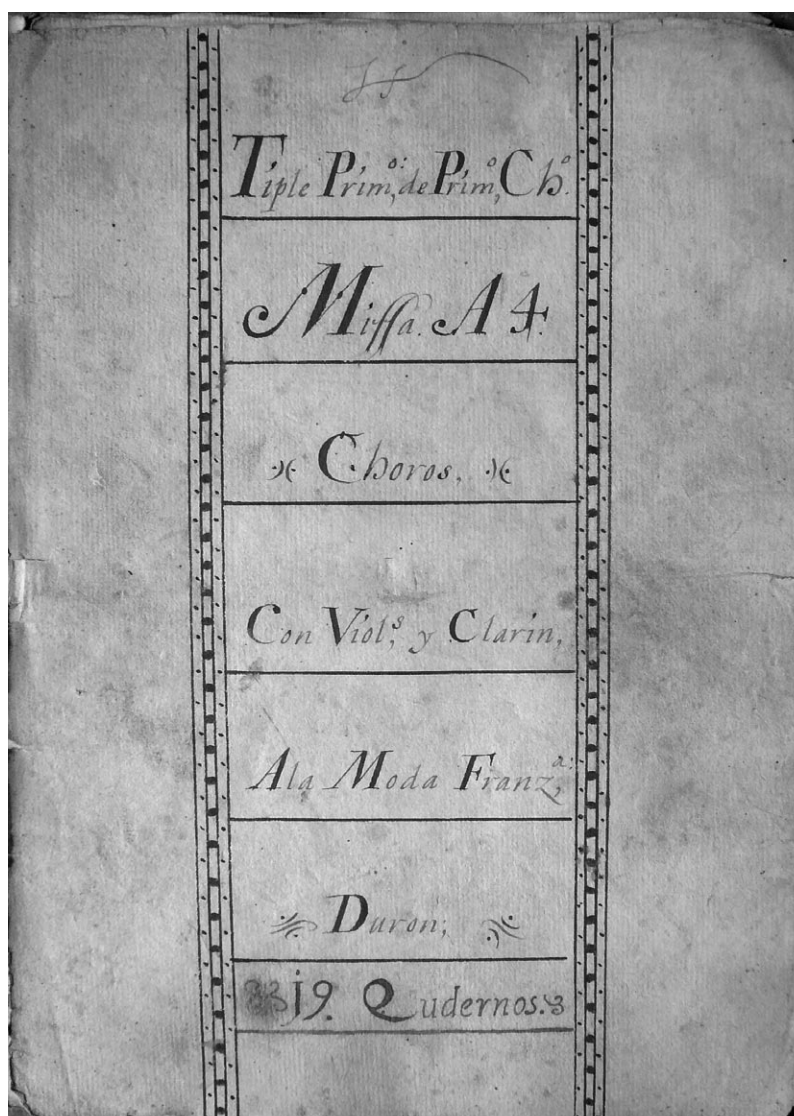 Tiple Prim,º: de Prim,º Chº.
Missa. A 4.
Choros,
Con Viol,ˢ y Clarin,
Ala Moda Franz,ª:
Duron;
19. Qudernos.